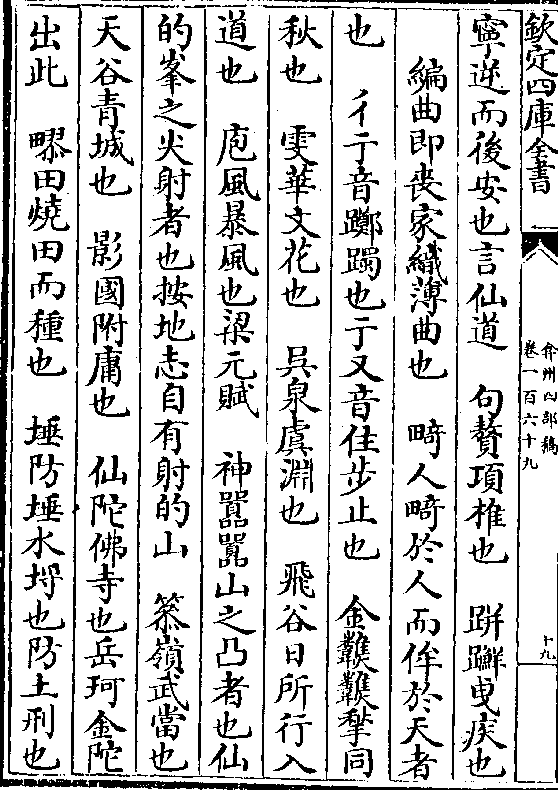 欽定四庫全書
弇州四部稿
卷一百六十九
十九
寧逆而後安也言仙道　句贅項椎也　跰𨇤曳疾也
編曲即喪家織薄曲也　畸人畸於人而侔於天者
也　彳亍音躑躅也亍又音住步止也　金䥫䥫犂同
秋也　雯華文花也　呉泉虞淵也　飛谷日所行入
道也　庖風暴風也梁元賦　神嚚嚚山之凸者也仙
的峯之尖射者也按地志自有射的山　篸嶺武當也
天谷青城也　影國附庸也　仙陀佛寺也岳珂金陀
出此　疁田燒田而種也　埵防埵水埒也防土刑也